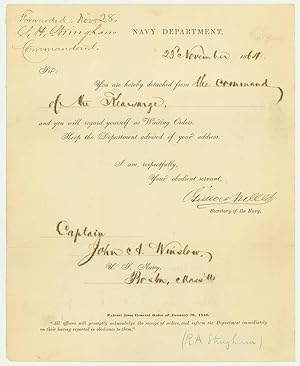 Forwarded Novr 28.
S. H. Stringham
Commandant.
NAVY DEPARTMENT,
23d November 1864
Sir:
You are hereby detached from the command
of the Kearsarge,
and you will regard yourself as Waiting Orders.
Keep the Department advised of your address.
I am, respectfully,
Your obedient servant,
Gideon Welles
Secretary of the Navy.
Captain
John A. Winslow,
U. S. Navy,
Boston, Mass tts
Extract from General Order of January 30, 1846.
"All officers will promptly acknowledge the receipt of orders, and inform the Department immediately
on their having reported in obedience to them."
(RA Stringham)